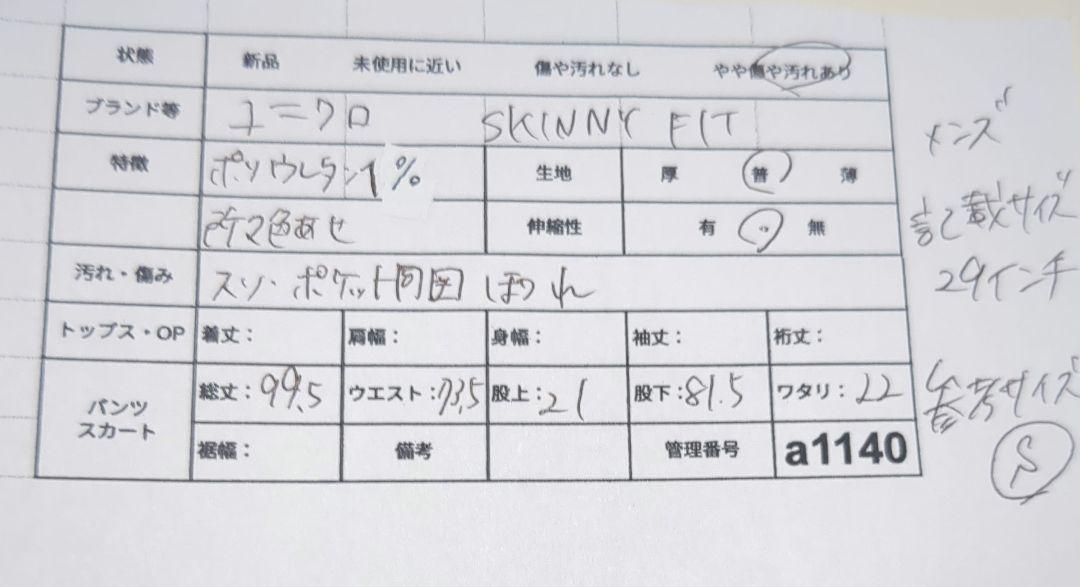 状態 新品 未使用に近い 傷や汚れなし やや傷や汚れあり
ブランド等 ユニクロ SKINNY FIT
特徴 ポリウレタン1% 生地 厚 普 薄
色あせ 伸縮性 有 無
汚れ・傷み スソ・ポケット周囲ほつれ
トップス・OP 着丈: 肩幅: 身幅: 袖丈: 裄丈:
パンツ スカート 総丈:99.5 ウエスト:73.5 股上:21 股下:81.5 ワタリ:22
裾幅: 備考 管理番号 a1140
メンズ
記載サイズ
29インチ
参考サイズ
S